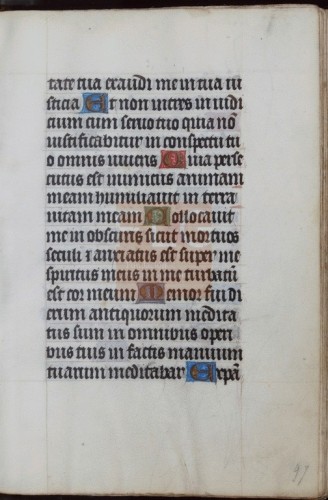 tate tua exaudi me in tua iu
sticia Et non intres in iudi
cium cum servo tuo quia nō
iustificabitur in conspectu tu
o omnis vivens Quia perse
cutus est inimicus animam
meam humiliavit in terra
vitam meam Collocavit
me in obscuris sicut mortuos
seculi ⁊ anxiatus est super me
spiritus meus in me turbatū
est cor meum Memor fui di
erum antiquorum medita
tus sum in omnibus operi
bus tuis in factis manuum
tuarum meditabar Expā
97